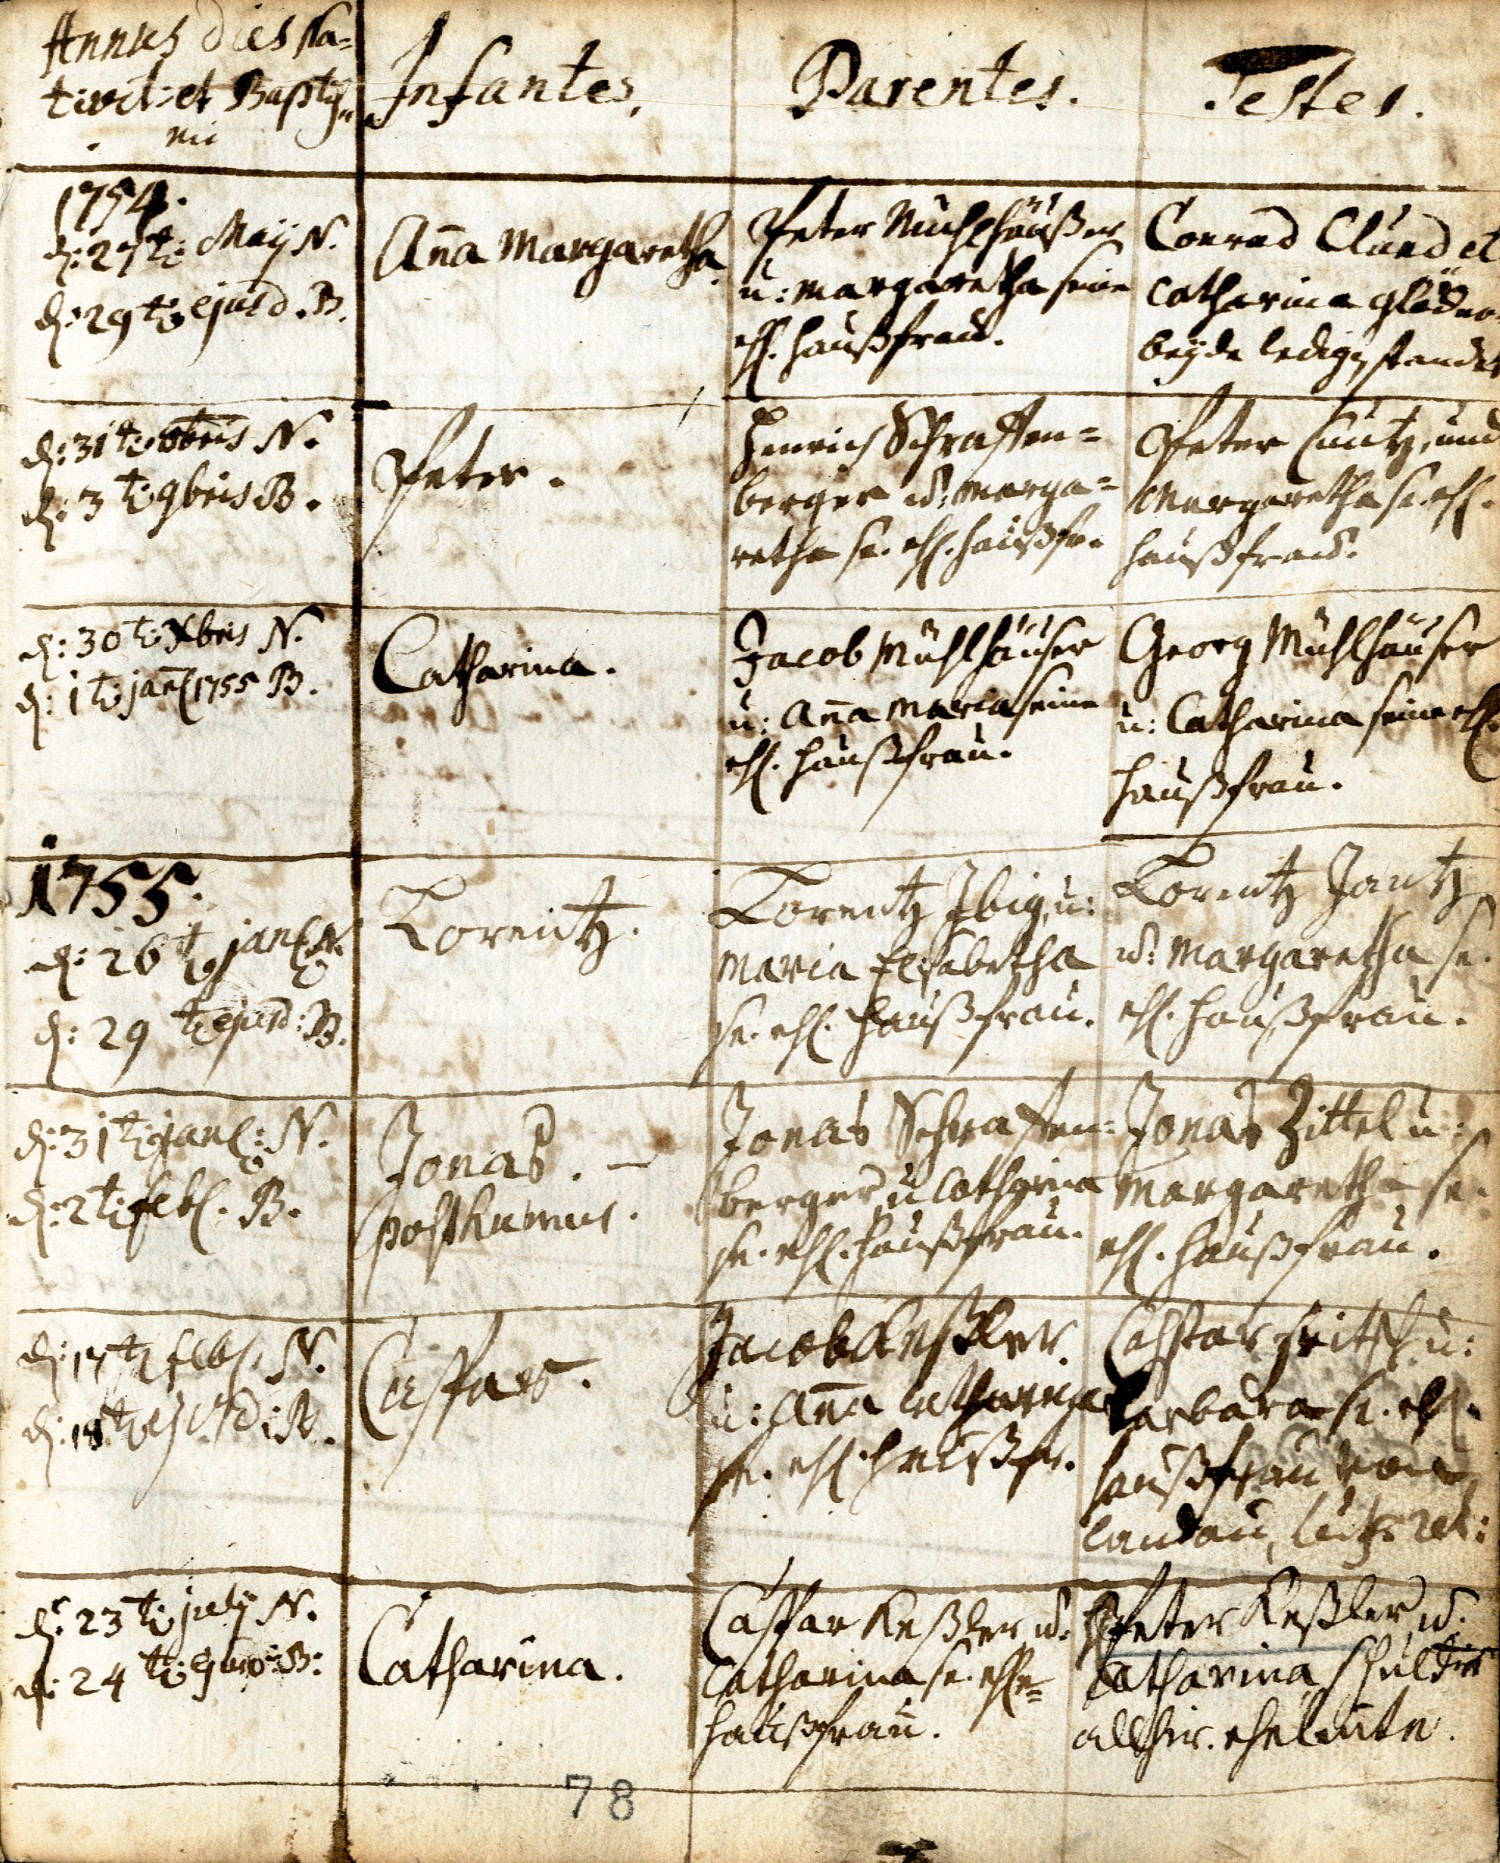 Annus dies Na=
tivit: et Baptis=
mi
Infantes.
Parentes.
Testes.
1754.
d: 27t: Maij N.
d: 29t: ejusd. B.
Aña Margaretha.
Peter Mühlhäußer
u: Margaretha seine
ehl. Haußfrau.
Conrad Clund et
Catharina
beÿde ledig Standes
d: 31t: 8bris N.
d: 3t: 9bris B.
Peter.
Henrich Schraffen=
berger u: Marga=
retha se. ehl. Haußfr.
Peter Cuntz, und
Margaretha se. ehl.
Haußfrau.
d: 30t: Xbris N.
d: 1t: jan 1755 B.
Catharina.
Jacob Mühlhäuser
u: Aña Maria seine
ehl. Haußfrau.
Georg Mühlhäuser
u: Catharina seine ehl.
Haußfrau.
1755.
d: 26t: jan N.
d: 29t: ejusd: B.
Lorentz.
Lorentz Ibig u:
Maria Elisabetha
se. ehl. Haußfrau.
Lorentz Jantz
u: Margaretha se.
ehl. Haußfrau.
d: 31t: jan: N.
d: 2t: feb. B.
Jonas. —
posthumus.
Jonas Schraffen=
berger, u Catharina
se. ehl. Haußfrau.
Jonas Zittel u:
Margaretha se.
ehl. Haußfrau.
d: 17t: feb. N.
d: 18t: ejusd: B.
Caspar.
Jacob Keßler.
u: Aña Catharina
se. ehl. Haußfr.
Caspar Fritsch u:
Barbara se. ehl.
Haußfrau von
Landau, luth: rel:
d: 23t: julij N.
d: 24t: B:
Catharina.
Caspar Keßler u:
Catharina se. ehl.
Haußfrau.
Peter Keßler, u.
Catharina Schultes
allhier. eheleute.
78